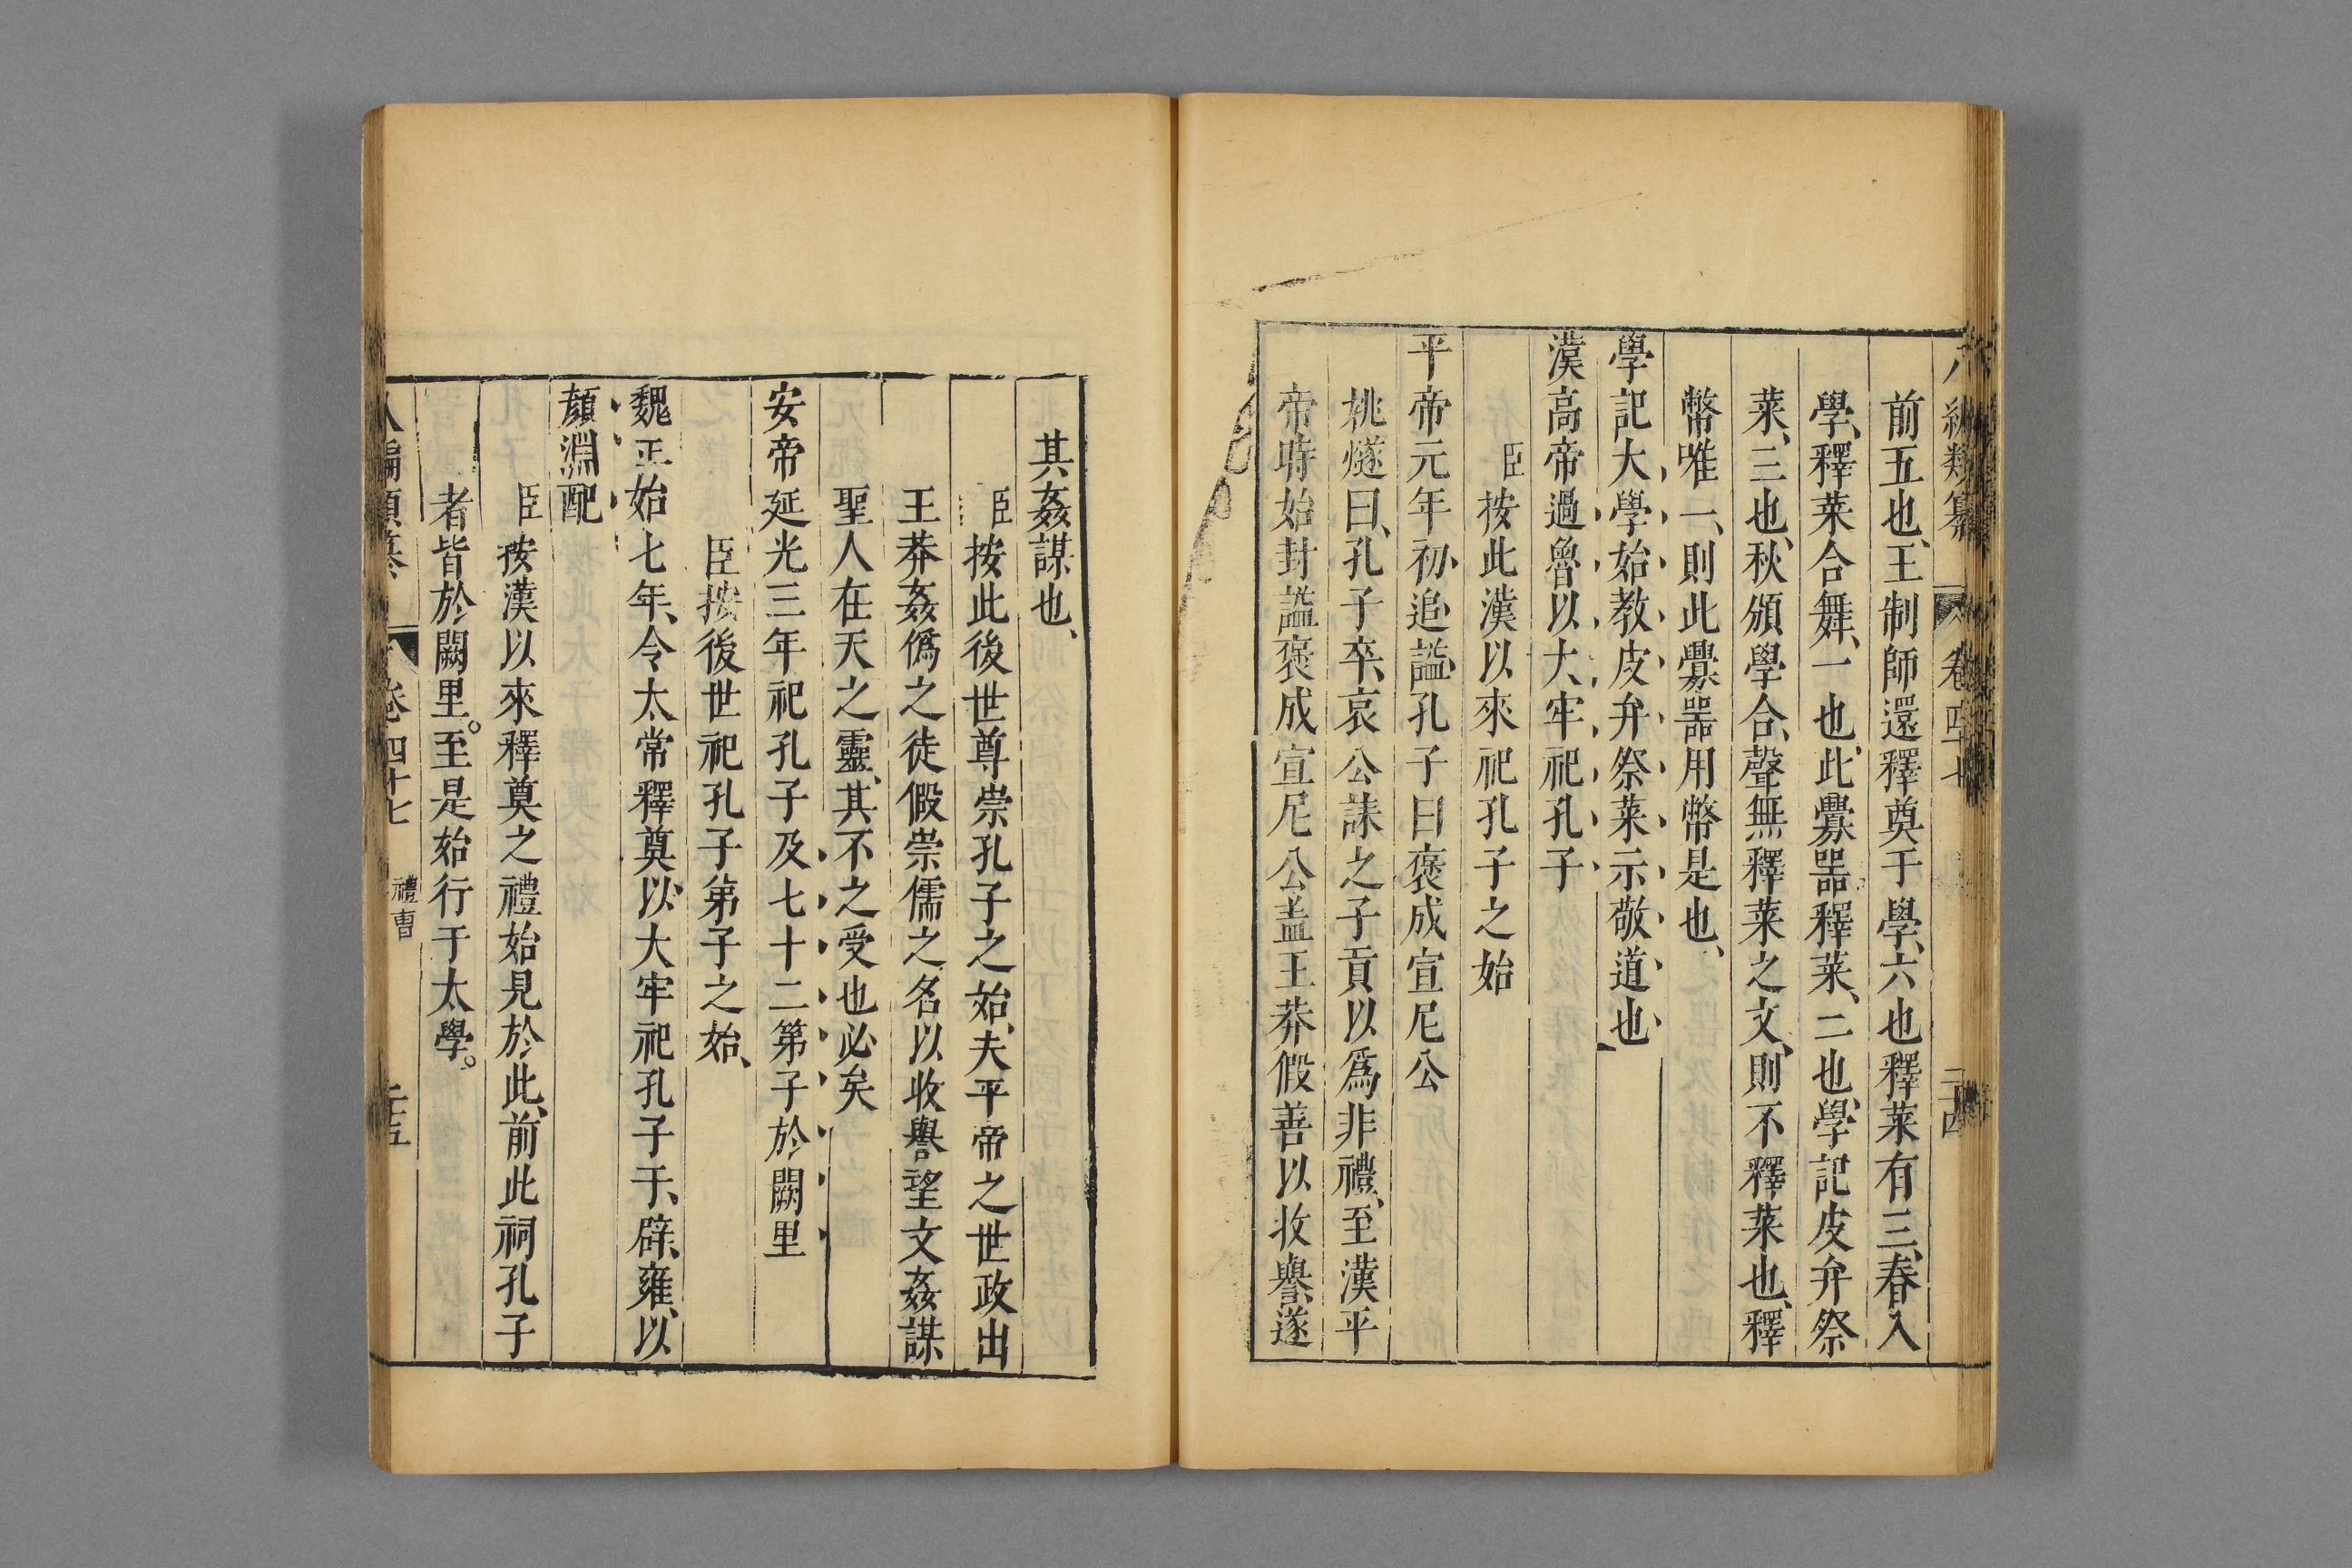 八編類纂 卷四十七 二十四
前五也、王制師還釋奠于學、六也釋菜有三、春入
學、釋菜合舞、一也、此釁器釋菜、二也、學記皮弁祭
菜、三也、秋頒學合、聲無釋菜之文、則不釋菜也、釋
幣唯一、則此釁器用幣是也、
學記大學始教皮弁祭菜示敬道也
漢高帝過魯以大牢祀孔子
臣按此漢以來祀孔子之始
平帝元年初追謚孔子曰褒成宣尼公
姚燧曰、孔子卒、哀公誄之子貢以爲非禮、至漢平
帝時始封謚褒成宣尼公盖王莽假善以收譽遂
其姦謀也、
臣按此後世尊崇孔子之始、夫平帝之世政出
王莽姦僞之徒假崇儒之名以收譽望文姦謀
聖人在天之靈、其不之受也必矣
安帝延光三年祀孔子及七十二第子於闕里
臣按後世祀孔子第子之始、
魏正始七年、令太常釋奠以大牢祀孔子于、辟、雍、以
顏淵配
臣按漢以來釋奠之禮始見於此、前此祠孔子
者皆於闕里。至是始行于太學。
八編類纂 卷四十七 禮曹 二十五